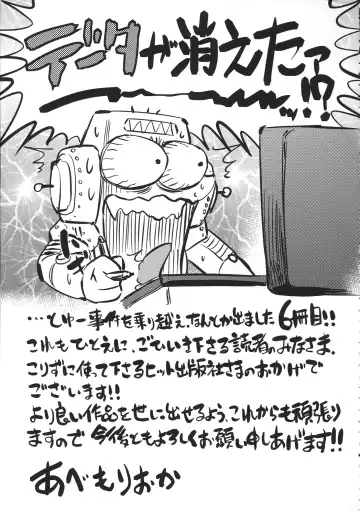 データが消えたァッ!?
…とゆー事件を乗り越え、なんとか出ました6冊目!!
これもひとえに、ごひいき下さる読者のみなさま、
こりずに使って下さるヒット出版社さまのおかげで
ございます!!
より良い作品を世に出せるよう、これからも頑張り
ますので今後ともよろしくお願い申しあげます!!
あべもりおか